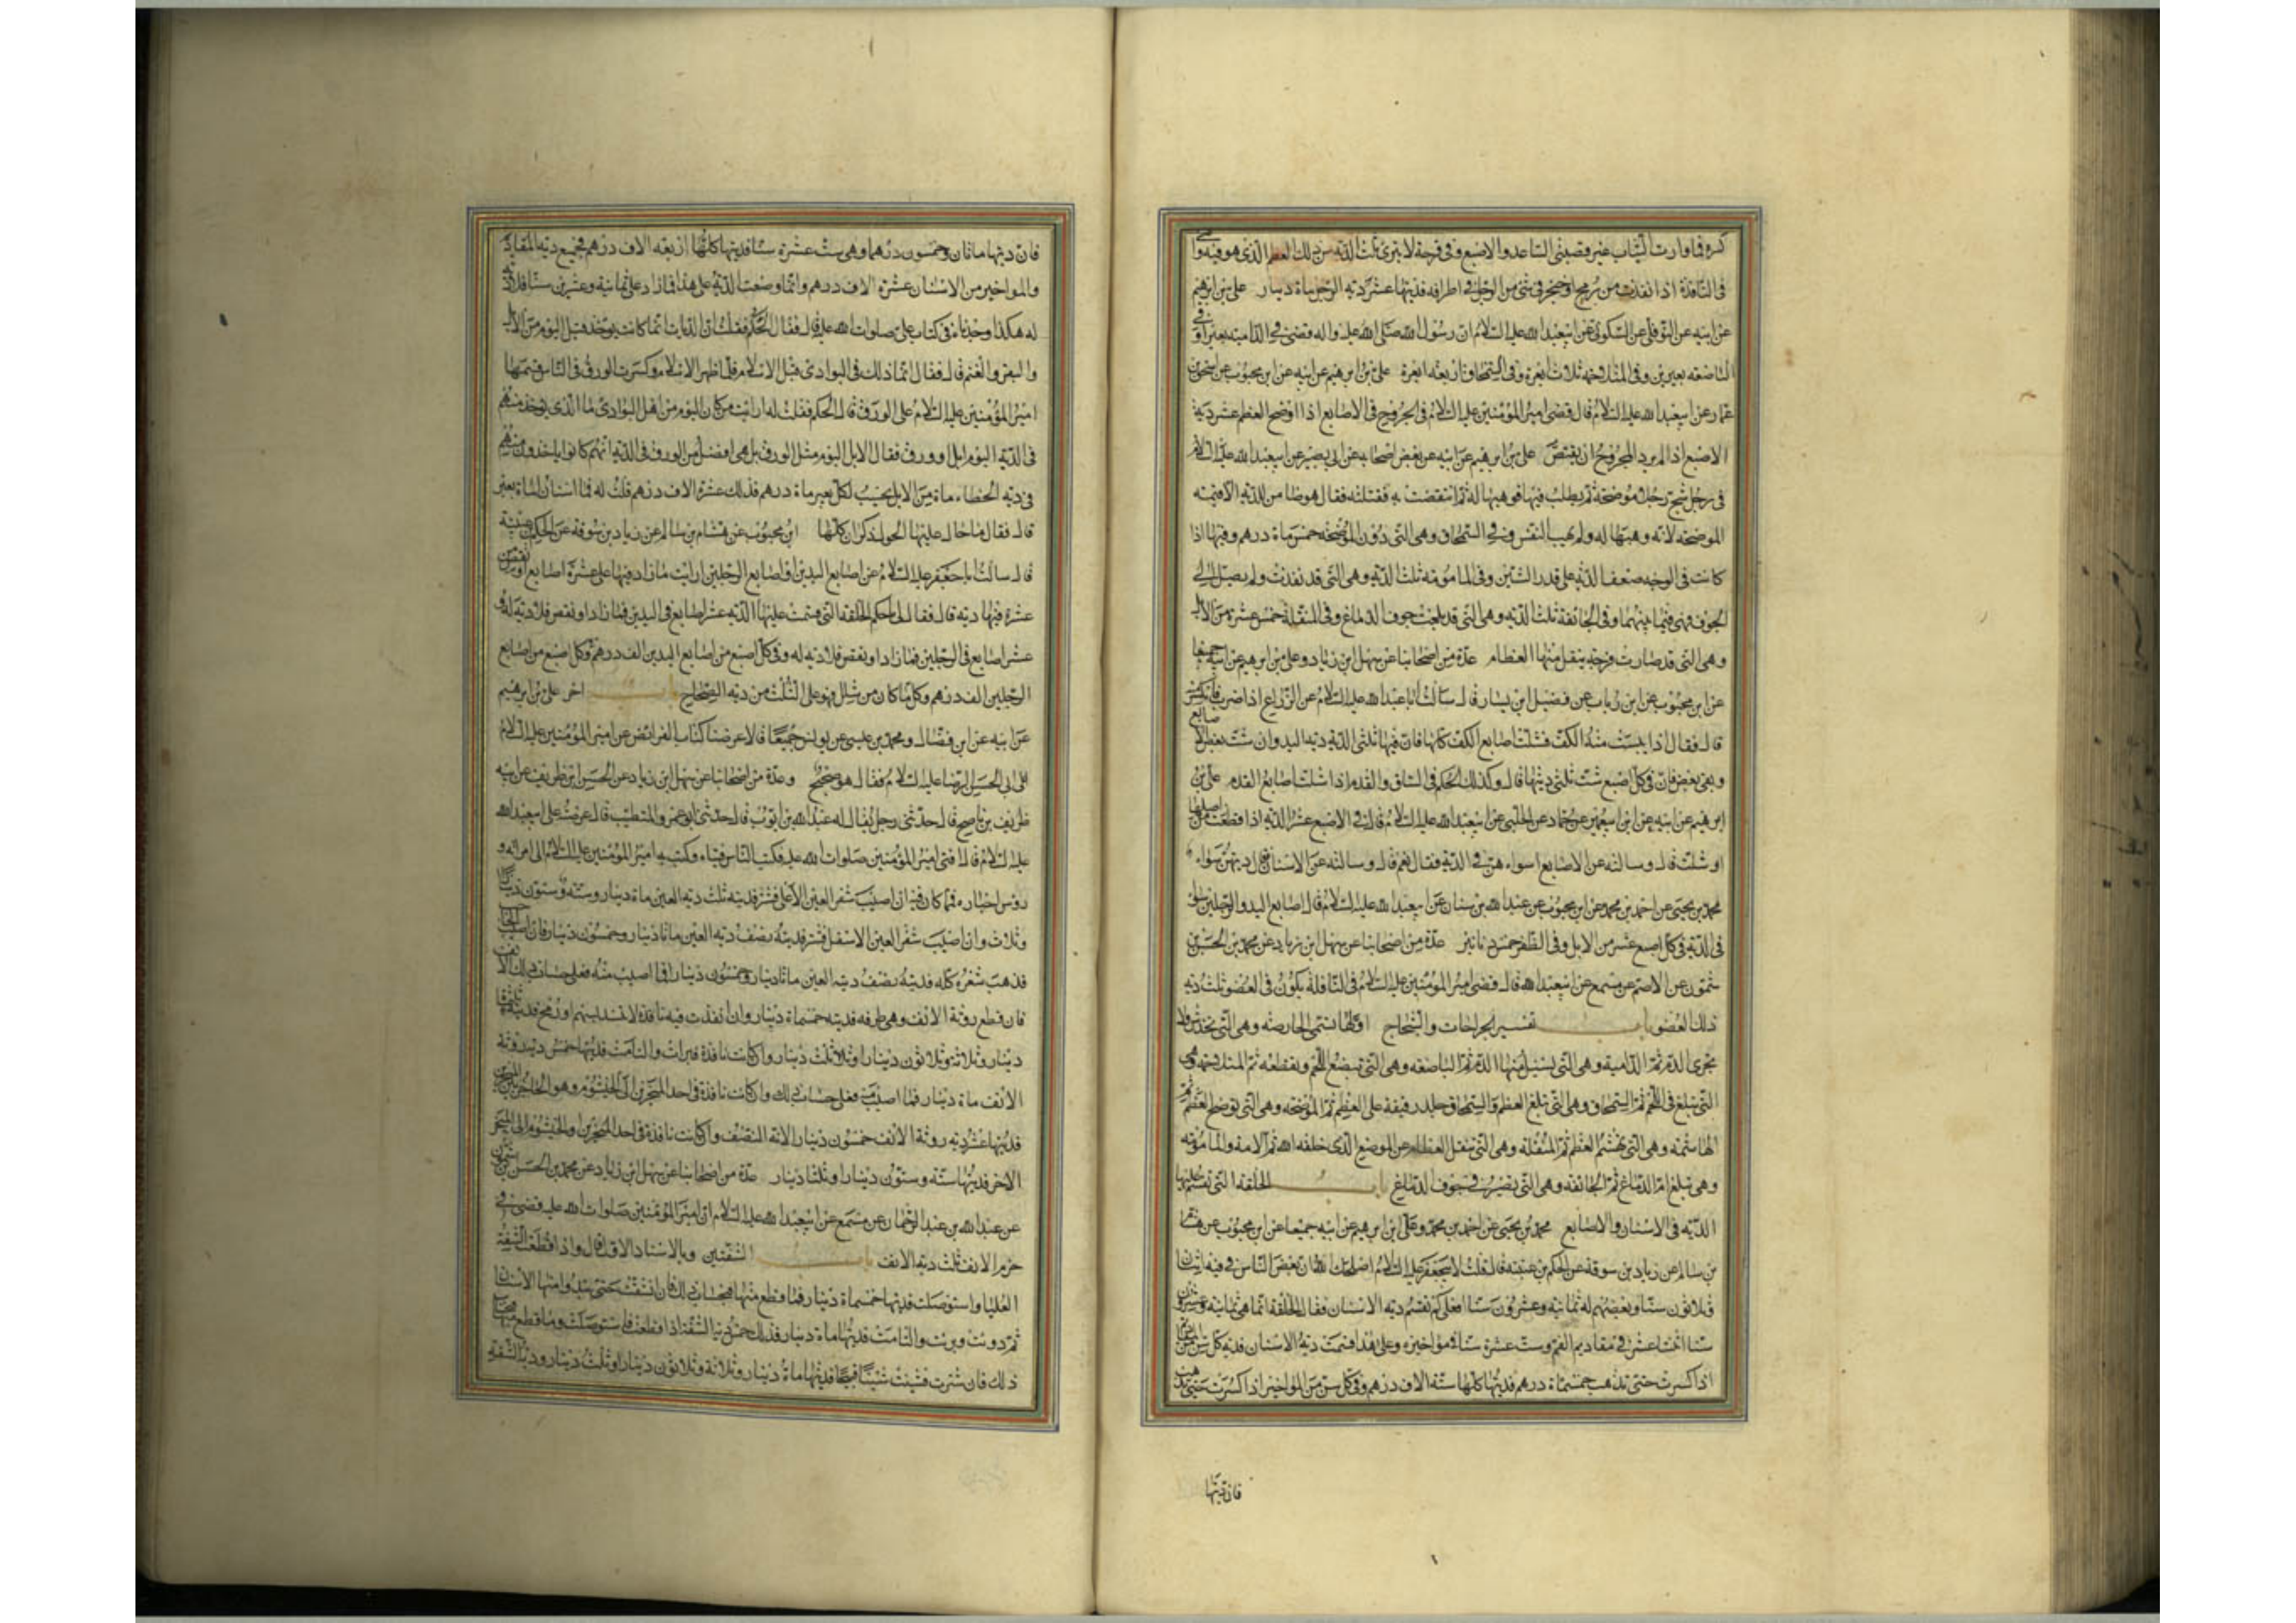 كسره فما وارت الثياب غير قصبتي الساعد والاصبع وفي قرحة لا تبرئ ثلث الدية من ذلك العظم الذي هو فيه و
في النافذة اذا نفذت من رمح او خنجر في شئ من الرجل في اطرافه فديتها عشر دية الرجل ماة دينار علي بن ابرهيم
عن ابيه عن النوفلي عن السكوني عن ابيعبد الله عليه السلام ان رسول الله صلى الله عليه واله قضى في الدامية بعيرا وفي
الباضعه بعيرين وفي المتلاحمه ثلاث ابعرة وفي السمحاق اربعه ابعرة علي بن ابرهيم عن ابيه عن ابن محبوب عن اسحق بن
عمار عن ابيعبد الله عليه السلام قال قضى امير المؤمنين عليه السلام في الجروح في الاصابع اذا اوضح العظم عشر دية
الاصبع اذا لم يرد المجروح ان يقتص علي بن ابرهيم عن ابيه عن بعض اصحابه عن ابي بصير عن ابيعبد الله عليه السلام
في رجل شج رجلا موضحة ثم يطلب فيها فوهبها له ثم انتقضت به فقتلته فقال هو ضامن للدية الا قيمته
الموضحه لانه وهبها له ولم يهب النفس وفي السمحاق وهي التي دون الموضحه خمس ماة درهم وفيها اذا
كانت في الوجه ضعف الدية على قدر الشين وفي المامومة ثلث الدية وهي التي قد نفذت ولم يصل الى
الجوف فهي فيما بينهما وفي الجائفة ثلث الدية وهي التي قد بلغت جوف الدماغ وفي المنقلة خمس عشرة من الابل
وهي التي قد صارت قرحة ينقل منها العظام عدة من اصحابنا عن سهل ابن زياد وعلي بن ابرهيم عن ابيه جميعا
عن ابن محبوب عن ابن رئاب عن فضيل ابن يسار قال سالت ابا عبد الله عليه السلام عن الذراع اذا ضرب فانكسر
قال فقال اذا يبست منه الكف فشلت اصابع الكف كلها فان فيها ثلثي الدية دية اليد وان شلت بعض الاصابع
وبقى بعض فان في كل اصبع شلت ثلثي ديتها قال وكذلك الحكم في الساق والقدم اذا شلت اصابع القدم علي بن
ابرهيم عن ابيه عن ابن ابيعمير عن حماد عن الحلبي عن ابيعبد الله عليه السلام قال في الاصبع عشر الدية اذا قطعت من اصلها
او شلت قال وسالته عن الاصابع اسواء هن في الدية فقال نعم قال وسالته عن الاسنان قال ديتهن سواء
محمد بن يحيى عن احمد بن محمد عن ابن محبوب عن عبد الله بن سنان عن ابيعبد الله عليه السلام قال اصابع اليد والرجلين سواء
في الدية في كل اصبع عشر من الابل وفي الظفر خمس دنانير عدة من اصحابنا عن سهل ابن زياد عن محمد بن الحسن بن
شمون عن الاصم عن مسمع عن ابيعبد الله قال قضى امير المؤمنين عليه السلام في النافذة يكون في العضو ثلث دية
ذلك العضو باب تفسير الجراحات والشجاج اولها تسمى الحارصه وهي التي تخدش ولا
يجري الدم ثم الدامية وهي التي يسيل منها الدم ثم الباضعه وهي التي تبضع اللحم وتقطعه ثم المتلاحمه وهي
التي تبلغ في اللحم ثم السمحاق وهي التي تبلغ العظم والسمحاق جلدة رقيقة على العظم ثم الموضحه وهي التي توضح العظم ثم
الهاشمة وهي التي تهشم العظم ثم المنقلة وهي التي تنقل العظام عن الموضع الذي خلقه الله ثم الامة والمامومه
وهي تبلغ ام الدماغ ثم الجائفه وهي التي تصير في جوف الدماغ باب الخلقة التي تقسم عليها
الدية في الاسنان والاصابع محمد بن يحيى عن احمد بن محمد وعلي ابن ابرهيم عن ابيه جميعا عن ابن محبوب عن هشام
بن سالم عن زياد بن سوقة عن الحكم بن عتيبة قال قلت لابيجعفر عليه السلام اصلحك الله ان بعض الناس في فيه اثنان
وثلاثون سنا وبعضهم له ثمانية وعشرون سنا فعلى كم تقسم دية الاسنان فقال الخلقة انما هي ثمانية وعشرون
سنا اثنتا عشر في مقاديم الفم وست عشرة سنا في مواخيره وعلى هذا قسمت دية الاسنان فدية كل سن من المقاديم
اذا كسرت حتى تذهب خمسماة درهم فديتها كلها ستة الاف درهم وفي كل سن من المواخير اذا كسرت حتى تذهب
فان ديتها
فان ديتها ماتان وخمسون درهما وهي ست عشرة سنا فديتها كلها اربعه الاف درهم فجميع دية المقاديم
والمواخير من الاسنان عشرة الاف درهم وانما وضعت الدية على هذا فما زاد على ثمانية وعشرين سنا فلا دية
له هكذا وجدناه في كتاب علي صلوات الله عليه قال فقال الحكم فقلت ان الديات انما كانت توخذ قبل اليوم من الابل
والبقر والغنم قال فقال انما ذلك في البوادي قبل الاسلام فلما ظهر الاسلام وكسرت الورق في الناس قسمها
امير المؤمنين عليه السلام على الورق قال الحكم فقلت له ارايت من كان اليوم من اهل البوادي ما الذي يوخذ منهم
في الدية اليوم ابل او ورق فقال الابل اليوم مثل الورق بل هي افضل من الورق في الدية انهم كانوا ياخذون منهم
في دية الخطاء ماة من الابل يحسب لكل بعير ماة درهم فذلك عشرة الاف درهم قلت له فما اسنان الماة بعير
قال فقال ما حال عليها الحول ذكران كلها ابن محبوب عن هشام بن سالم عن زياد بن سوقة عن الحكم بن عتيبة
قال سالت ابا جعفر عليه السلام عن اصابع اليدين واصابع الرجلين ارايت ما زاد فيها على عشرة اصابع او نقص من
عشرة فيها دية قال فقال لي يا حكم الخلقه التي قسمت عليها الدية عشر اصابع في اليدين فما زاد او نقص فلا دية له و
عشر اصابع في الرجلين فما زاد او نقص فلا دية له وفي كل اصبع من اصابع اليدين الف درهم وكل اصبع من اصابع
الرجلين الف درهم وكل ما كان من شلل فهو على الثلث من دية الصحاح باب اخر علي بن ابرهيم
عن ابيه عن ابن فضال ومحمد بن عيسى عن يونس جميعا قالا عرضنا كتاب الفرائض عن امير المؤمنين عليه السلام
على ابي الحسن الرضا عليه السلام فقال هو صحيح وعدة من اصحابنا عن سهل ابن زياد عن الحسن ابن ظريف عن ابيه
ظريف بن ناصح قال حدثني رجل يقال له عبد الله بن ايوب قال حدثني ابو عمرو المتطبب قال عرضت على ابيعبد الله
عليه السلام قال افتى امير المؤمنين صلوات الله عليه فكتب الناس فتياه وكتب به امير المؤمنين عليه السلام الى امرائه و
روس اجناده فما كان فيه ان اصيب شفر العين الاعلى فشتر فديته ثلث دية العين ماة دينار وستة وستون دينارا
وثلاث وان اصيب شفر العين الاسفل فشتر فديته نصف دية العين ماتا دينار وخمسون دينار فان اصيب الحاجب
فذهب شعره كله فديته نصف دية العين ماتا دينار وخمسون دينار فما اصيب منه فعلى حساب ذلك الانف
فان قطع روثة الانف وهي طرفه فديته خمسماة دينار وان نفذت فيه نافذة لا تنسد بسهم او رمح فديته ثلثماة
دينار وثلاثة وثلاثون دينارا وثلث دينار وان كانت نافذة فبرات والتامت فديتها خمس دية روثة
الانف ماة دينار فما اصيب منه فعلى حساب ذلك وان كانت نافذة في احد المنخرين الى الخيشوم وهو الحاجز بين المنخرين
فديتها عشر دية روثة الانف خمسون دينار لانه النصف وان كانت نافذة في احد المنخرين والخيشوم الى المنخر
الاخر فديتها ستة وستون دينارا وثلثا دينار عدة من اصحابنا عن سهل ابن زياد عن محمد بن الحسن بن شمون
عن عبد الله بن عبد الرحمان عن مسمع عن ابيعبد الله عليه السلام ان امير المؤمنين صلوات الله عليه قضى في
خرم الانف ثلث دية الانف باب الشفتين وبالاسناد الاول قال واذا قطعت الشفة
العليا واستوصلت فديتها خمسماة دينار فما قطع منها فبحساب ذلك فان انشقت حتى تبدوا منها الاسنان
ثم دويت وبريت والتامت فديتها ماة دينار فذلك خمس دية الشفة اذا قطعت فاستوصلت وما قطع منها فبحساب
ذلك فان شترت فشينت شينا قبيحا فديتها ماة دينار وثلاثة وثلاثون دينارا وثلث دينار ودية الشفة